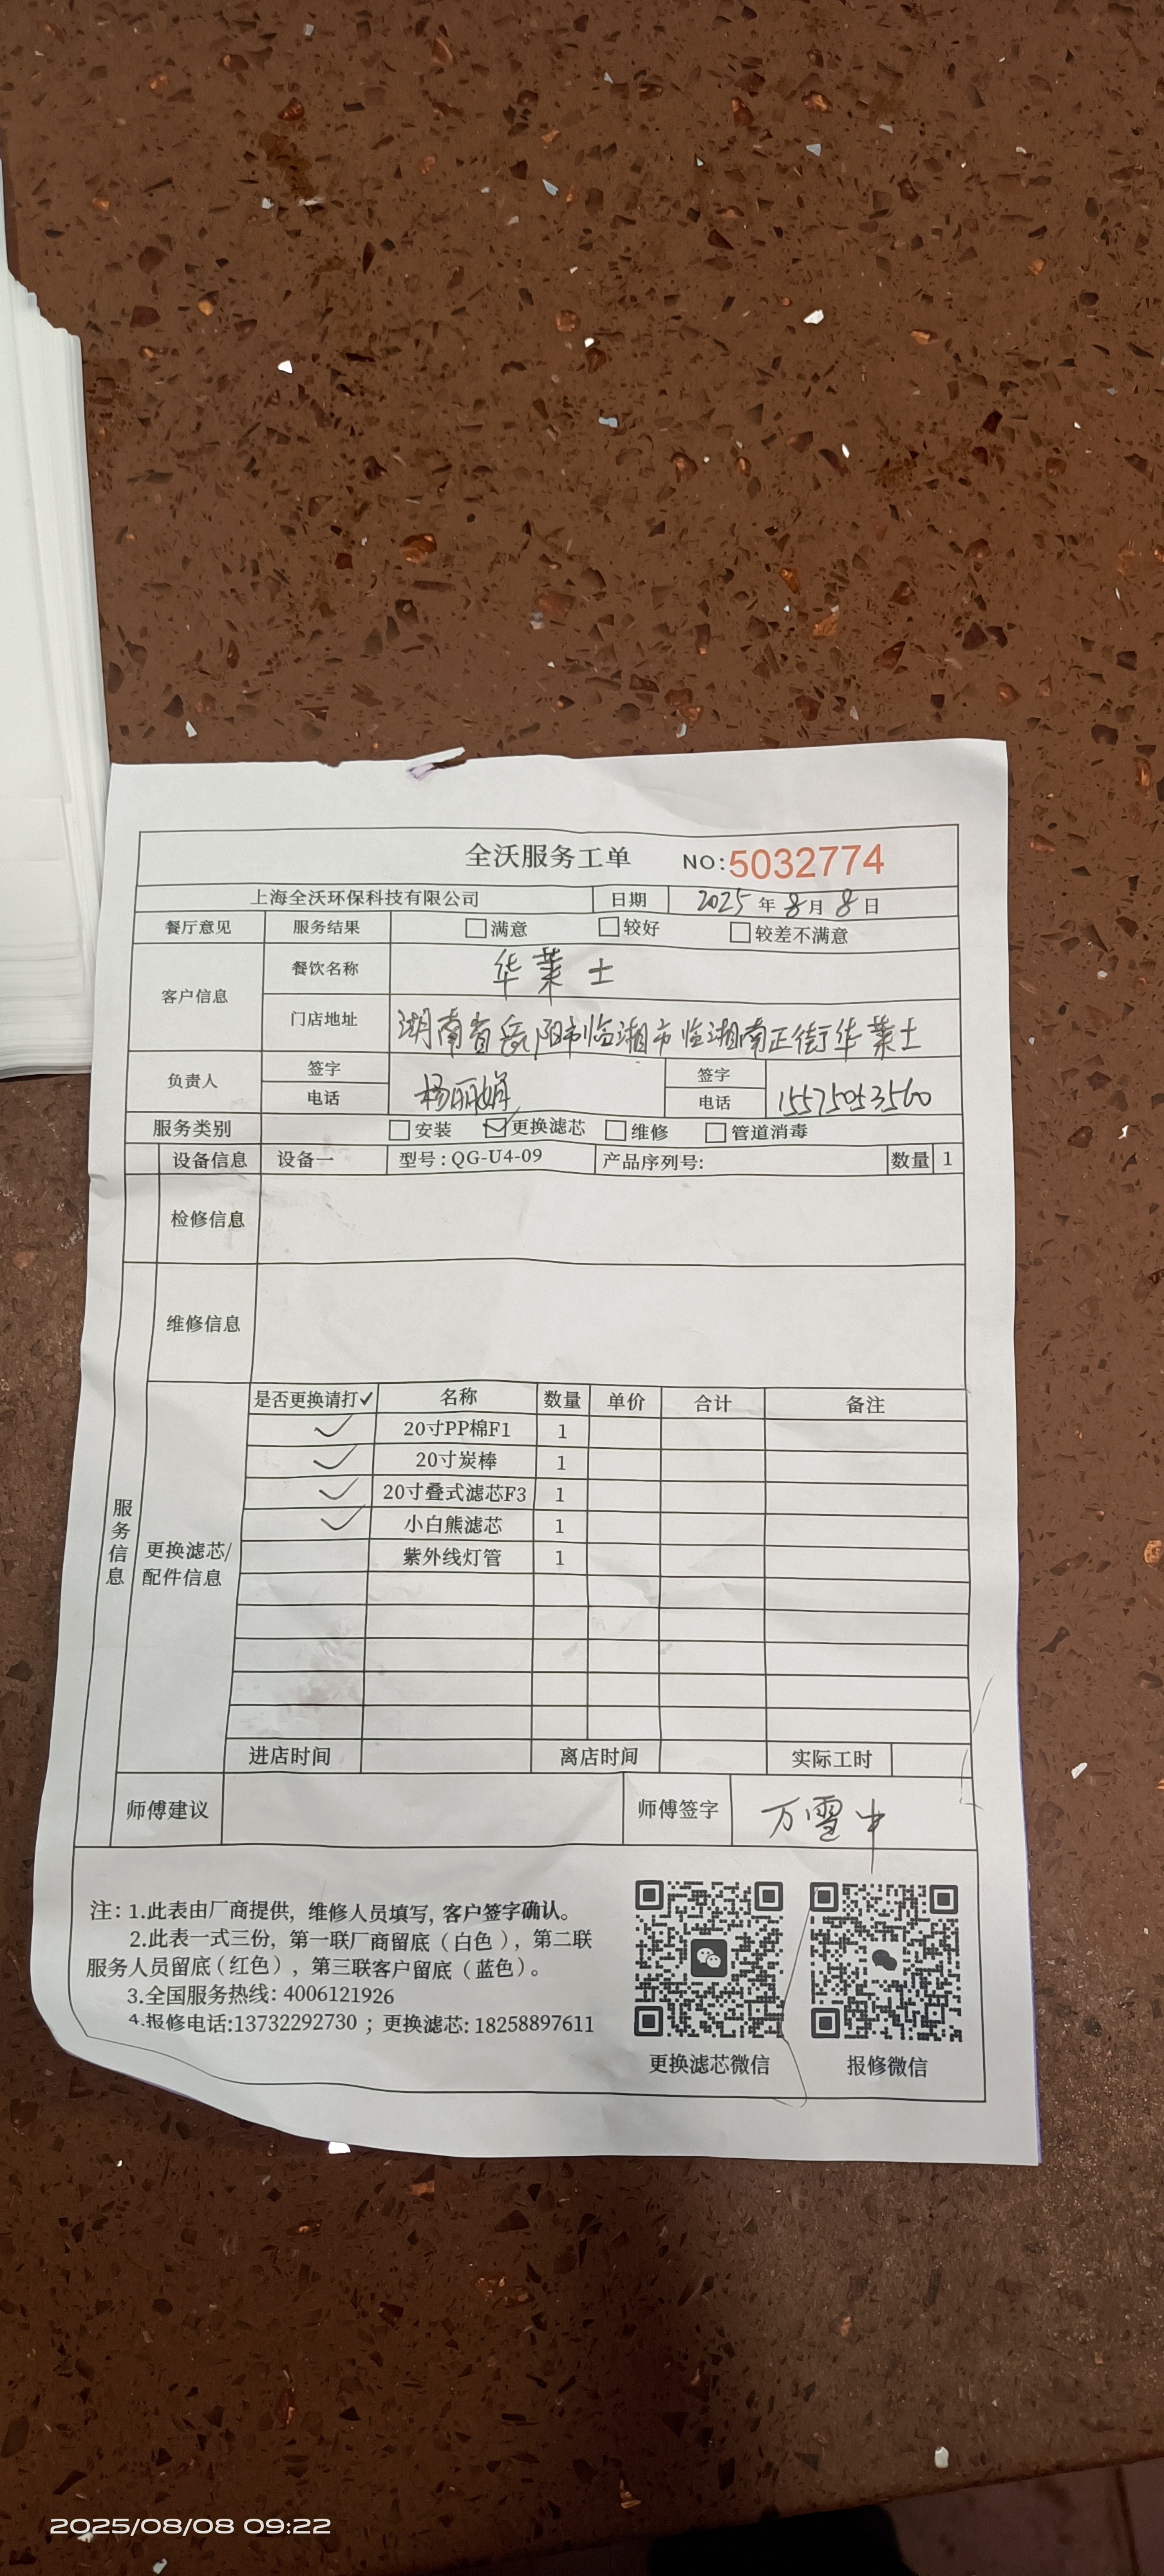 全沃服务工单 NO:5032774
上海全沃环保科技有限公司 日期 2025年8月8日
餐厅意见 服务结果 □满意 □较好 □较差不满意
客户信息 餐饮名称 华莱士
门店地址 湖南省岳阳市临湘市临湘南正街华莱士
负责人 签字 电话 杨丽娟 签字 电话 15575053560
服务类别 □安装 ☑更换滤芯 □维修 □管道消毒
设备信息 设备一 型号:QG-U4-09 产品序列号: 数量 1
检修信息
维修信息
服务信息
更换滤芯/配件信息
是否更换请打✓ 名称 数量 单价 合计 备注
✓ 20寸PP棉F1 1
✓ 20寸炭棒 1
✓ 20寸叠式滤芯F3 1
✓ 小白熊滤芯 1
紫外线灯管 1
进店时间 离店时间 实际工时
师傅建议 师傅签字 万雪中
注: 1.此表由厂商提供, 维修人员填写, 客户签字确认。
2.此表一式三份, 第一联厂商留底（白色）, 第二联
服务人员留底（红色）, 第三联客户留底（蓝色）。
3.全国服务热线: 4006121926
4.报修电话:13732292730 ; 更换滤芯: 18258897611
更换滤芯微信 报修微信
2025/08/08 09:22